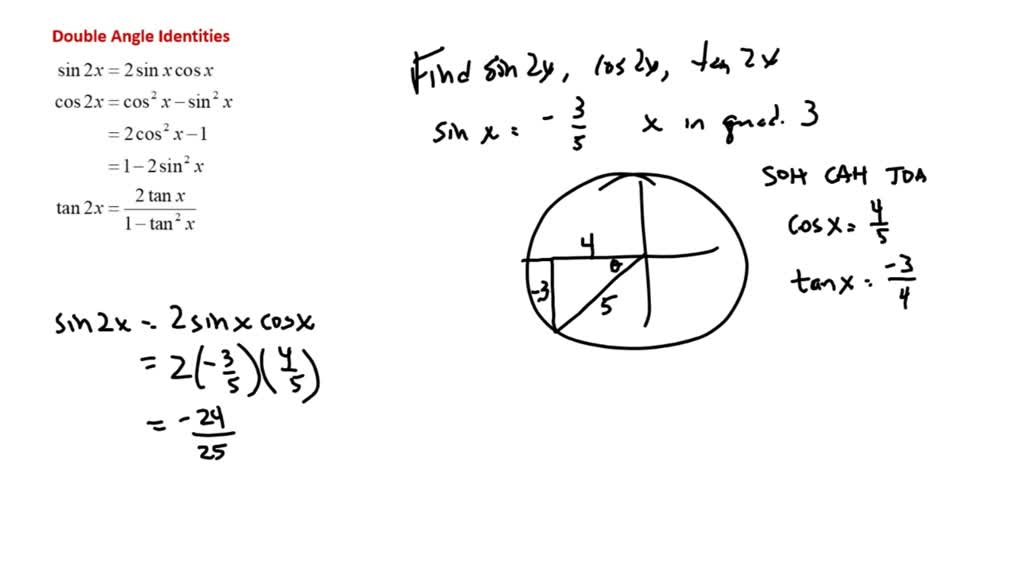 Double Angle Identities
sin 2x = 2 sin x cos x
cos 2x = cos² x − sin² x
= 2 cos² x − 1
= 1 − 2 sin² x
tan 2x = 2 tan x / 1 − tan² x
Find sin 2x, cos 2x, tan 2x
sin x = - 3/5 x in quad. 3
SOH CAH TOA
cos x = 4/5
tan x = -3/4
4
θ
-3
5
sin 2x = 2 sin x cos x
= 2(-3/5)(4/5)
= -24/25